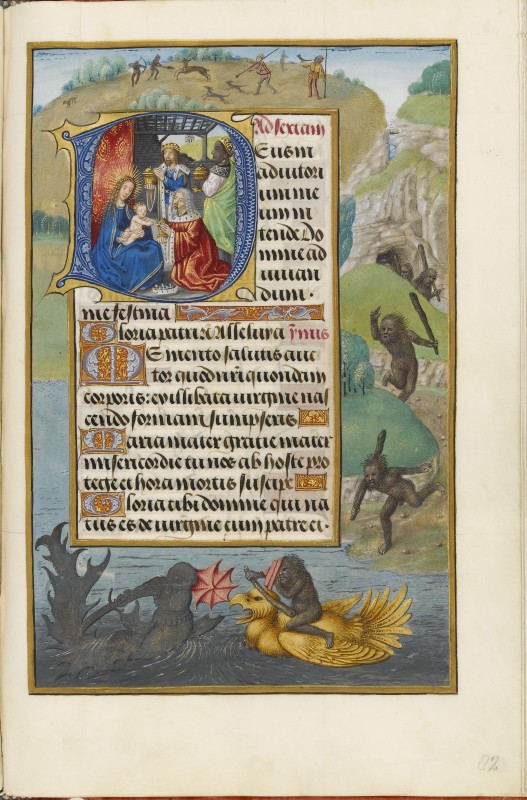 Ad sextam
Deus in
adiutori
um me
um in
tende Do
mine ad
iuuan
dum.
me festina
Gloria patri Alleluya
Memento salutis auc
tor quod nr̃i quondam
corporis: ex illibata uirgine nas
cendo formam sumpseris
Maria mater gratie mater
misericordie tu nos ab hoste pro
tege et hora mortis suscipe
Gloria tibi domine qui na
tus es de uirgine cum patre et.
82